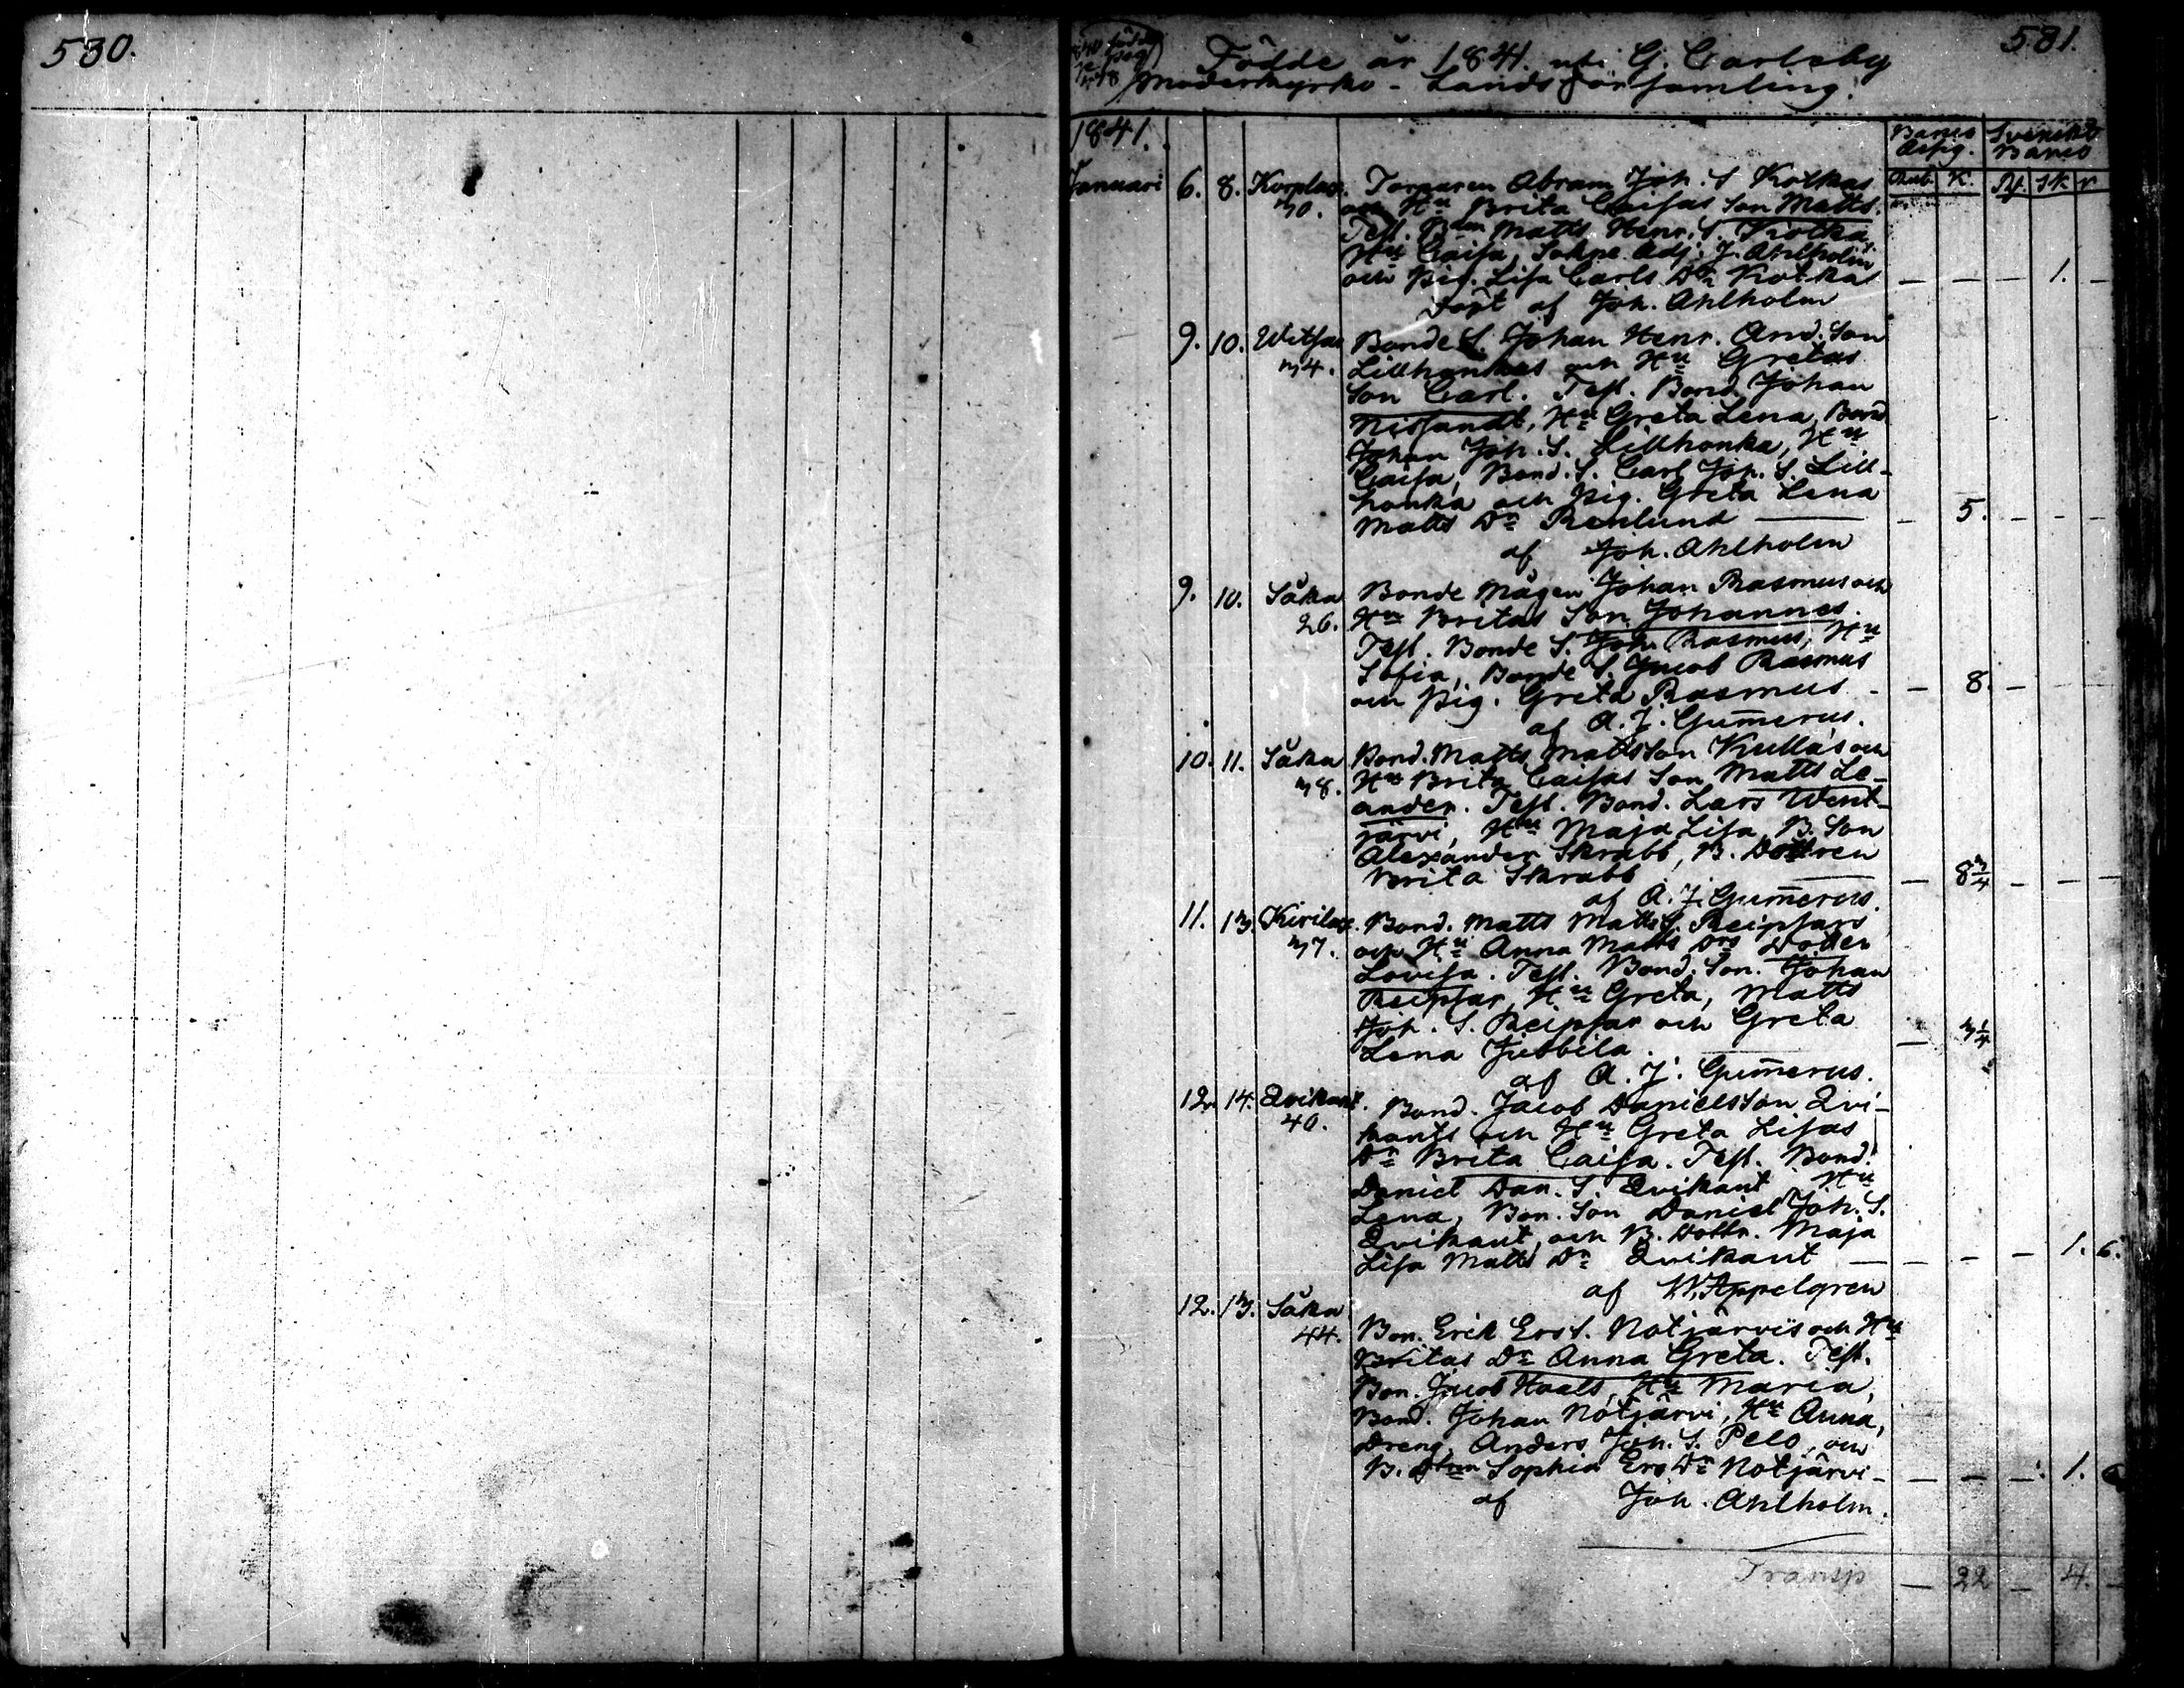 530.
581.
Födde år 1841. uti G. Carleby
Moderkyrko-Lands Församling.
1841.
Banco Assig. Svenskt Banco
Rub. K. R. sk r
Januari 6. 8. Korplax. Torparen Abram Joh. S Kotkas
30. och Hu Brita Caisas Son Matts.
Test. Bdn Matts Henr. S Kotka,
Hu Caisa, Sokne Adj. J. Ahlholm
och Pig. Lisa Carls Dr Kotka — — — 1. —
Döpt af Joh. Ahlholm
9. 10. Witsar Bonde S. Johan Henr. And. Son
34. Lillhonkas och Hu Gretas
Son Carl. Test. Bond. Johan
Nissandt, Hu Greta Lena, Bond
Johan Joh. S. Lillhonka, Hu
Caisa, Bond. S. Carl Joh. S. Lill-
honka och Pig. Greta Lena
Matts Dr Renlund — — 5. — — —
af Joh. Ahlholm
9. 10. Såka Bonde Mågen Johan Rasmus och
26. Hu Britas Son Johannes.
Test. Bonde S. Joh. Rasmus, Hu
Sofia, Bonde S. Jacob Rasmus
och Pig. Greta Rasmus - — 8. —
af A. J. Gum̅erus.
10. 11. Såka Bond. Matts Mattsson Kullas och
38. Hu Brita Caisas Son Matts Le-
ander. Test. Bond. Lars Went-
järvi, Hu Maja Lisa, B. Son
Alexander Skrabb, B. Dottren
Brita Skrabb — — 8 3/4 — — —
af A. J. Gum̅erus.
11. 13. Kirilax. Bond. Matts Matts S. Reipsars
37. och Hu Anna Matts Drs Dotter
Lovisa. Test. Bond. Son. Johan
Reipsar, Hu Greta, Matts
Joh. S. Reipsar och Greta
Lena Jubbila. — — 3/4
af A. J. Gum̅erus.
12. 14. Qvikant. Bond. Jacob Danielsson Qvi-
40. kants och Hu Greta Lisas
Dr Brita Caisa. Test. Bond.
Daniel Dan. S. Qvikant, Hu
Lena, Bon. Son Daniel Joh. S.
Qvikant, och B. Dottr. Maja
Lisa Matts Dr Qvikant — — — — 1. 6.
af W. Appelgren
12. 13. Såka
44. Bon. Erik Ers S. Notjärvis och Hu
Britas Dr Anna Greta. Test.
Bon. Jacob Haals, Hu Maria,
Bond. Johan Notjärvi, Hu Anna,
Dreng. Anders Joh. S. Pelo, och
B. Dtrn Sophia Ers Dr Notjärvi - — — — 1.
af Joh. Ahlholm.
Transp — 22 — 4. —